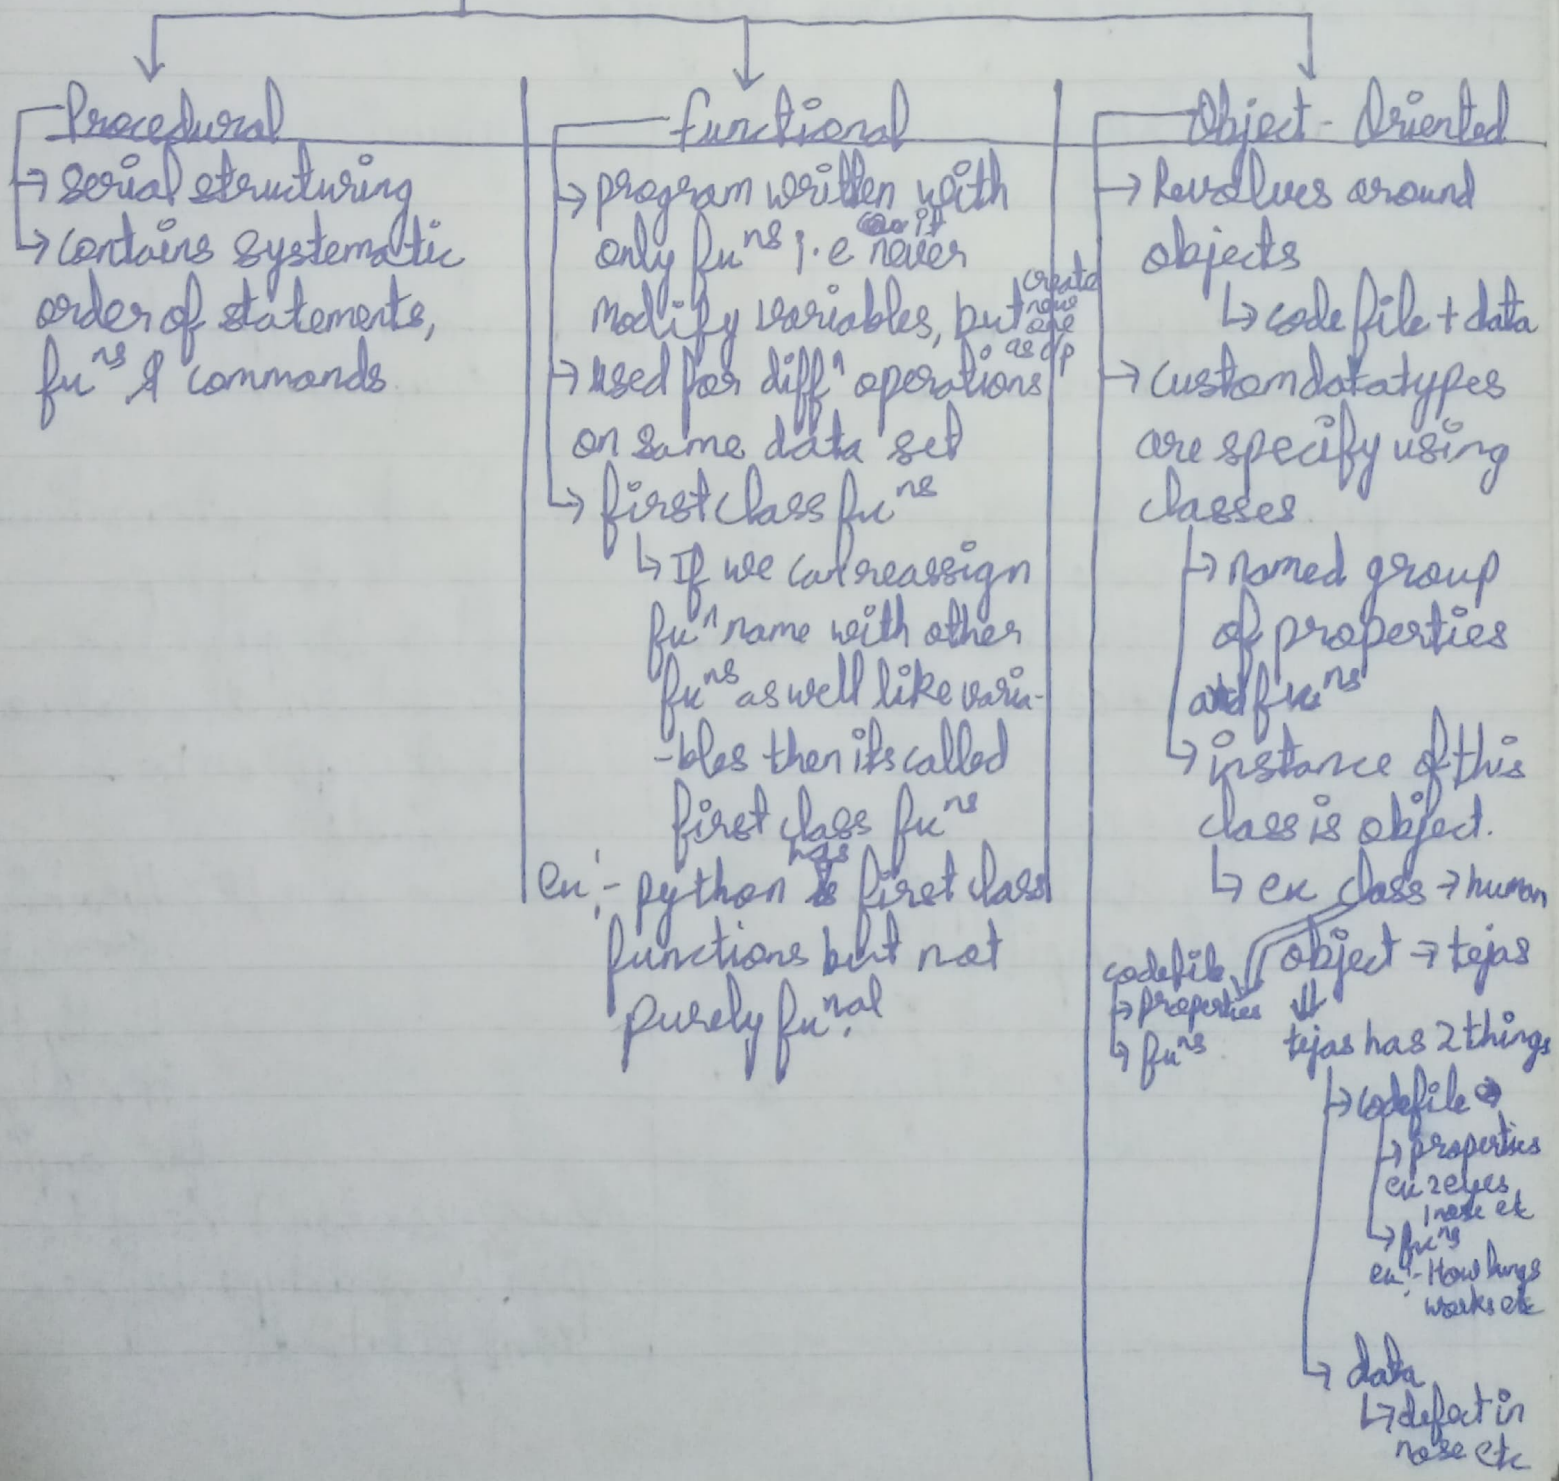 Procedural
→ serial structuring
→ contains systematic
order of statements,
fuⁿˢ & commands
functional
→ program written with
only fuⁿˢ i.e never
modify variables, but create
new
one
as o/p
→ used for diffⁿ operations
on same data set
→ first class fuⁿˢ
↳ If we can reassign
fuⁿ name with other
fuⁿˢ as well like varia-
-bles then its called
first class fuⁿˢ
ex:- python has first class
functions but not
purely fuⁿal.
Object - Oriented
→ Revolves around
objects
↳ code file + data
→ custom datatypes
are specify using
classes
→ named group
of properties
and fuⁿˢ
→ instance of this
class is object.
↳ ex class → human
object → tejas
codefile
→ properties
→ fuⁿˢ
tejas has 2 things
→ codefile
→ properties
ex 2 eyes
1 nose etc
→ fuⁿˢ
ex:- How lungs
works etc
→ data
↳ defect in
nose etc